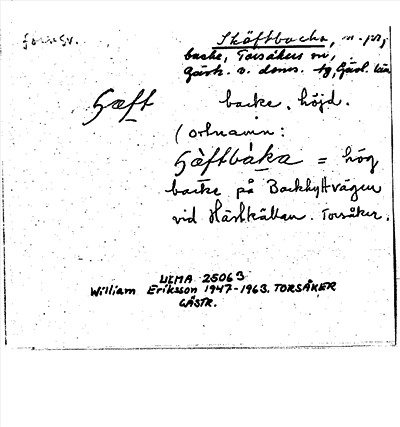 fornsv. Skäftbacka, n. pr.,
backe, Torsåkers sn,
Gästr. o. doms. tg, Gävl. län
Hæft backe, höjd.
(ortnamn:
Häftbåka = hög
backe på Backhyttvägen
vid Härkällan. Torsåker.
ULMA 25063
William Eriksson 1947-1963. TORSÅKER
GÄSTR.